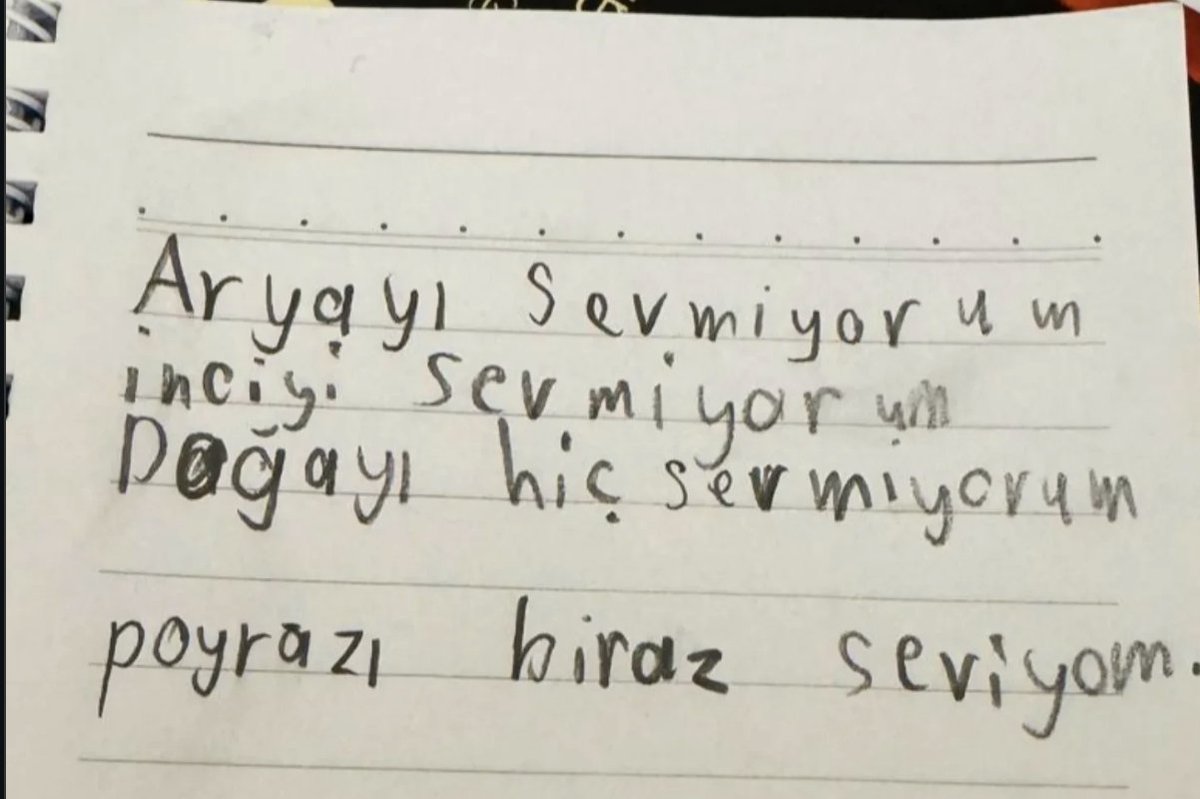 Aryayı sevmiyorum
inciyi sevmiyorum
Doğayı hiç sevmiyorum
poyrazı biraz seviyom.